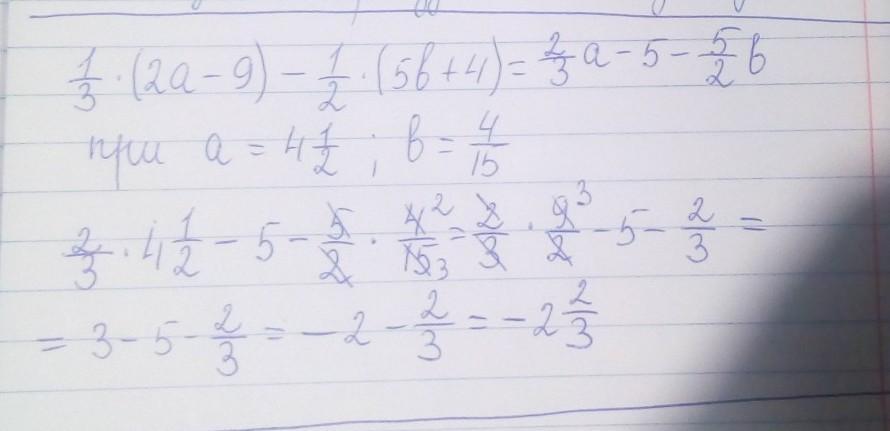 1/3 · (2a − 9) − 1/2 · (5в + 4) = 2/3 a − 5 − 5/2 в
при a = 4 1/2 ; в = 4/15
2/3 · 4 1/2 − 5 − 5/2 · 4²/15₃ = 2/3 · 9³/2 − 5 − 2/3 =
= 3 − 5 − 2/3 = − 2 − 2/3 = − 2 2/3